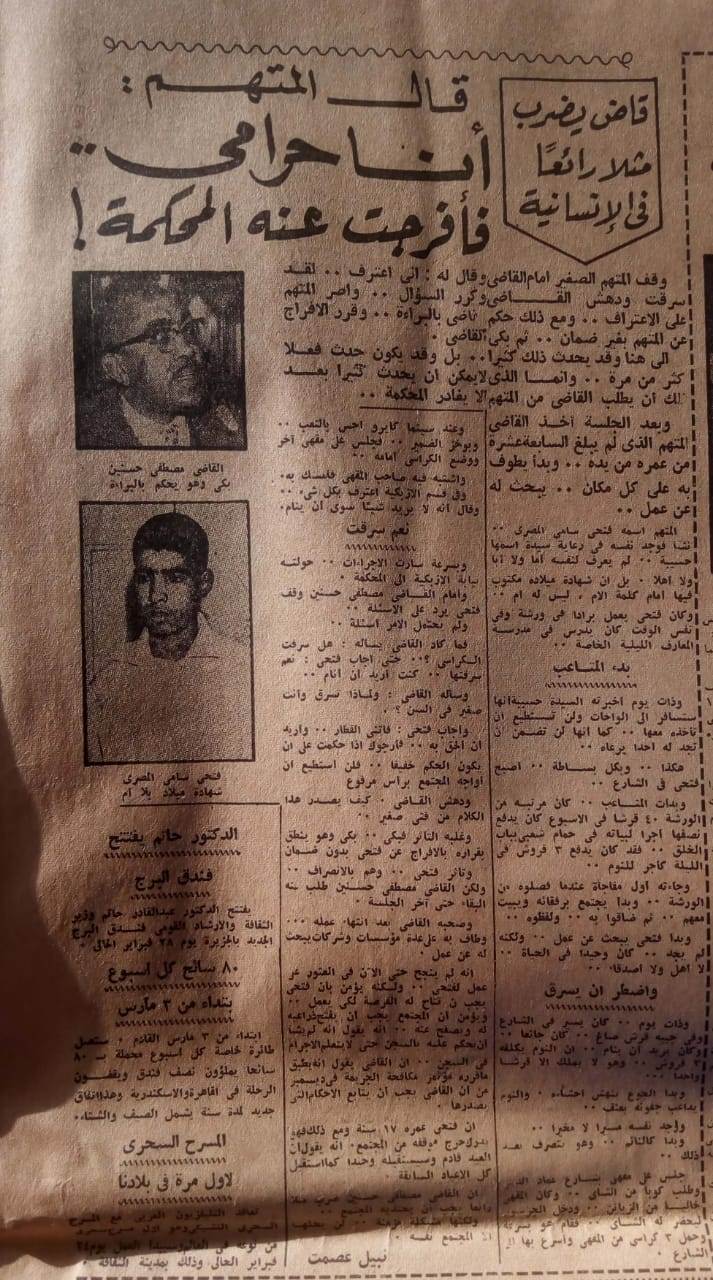 قاض يضرب
مثلا رائعًا
فى الإنسانية
قال المتهم :
أنا حرامى ..
فأفرجت عنه المحكمة !
وقف المتهم الصغير امام القاضى وقال له : انى اعترف .. لقد
سرقت ودهش القاضى وكرر السؤال .. واصر المتهم
على الاعتراف .. ومع ذلك حكم قاضى بالبراءة .. وقرر الافراج
عن المتهم بغير ضمان .. ثم بكى القاضى .
الى هنا وقد يحدث ذلك كثيرا .. بل وقد يكون حدث فعلا
كثر من مرة .. وانما الذى لايمكن أن يحدث كثيرا بعد
ذلك أن يطلب القاضى من المتهم الا يغادر المحكمة ..
وبعد الجلسة أخذ القاضى
المتهم الذى لم يبلغ السابعة عشرة
من عمره من يده .. وبدأ يطوف
به على كل مكان .. يبحث له
عن عمل ..
المتهم اسمه فتحى سامى المصرى ..
نشأ فوجد نفسه فى رعاية سيدة اسمها
حسيبة .. لم يعرف لنفسه أما ولا أبا
ولا أهلا . بل ان شهادة ميلاده مكتوب
فيها امام كلمة الام ، ليس له ام ..
وكان فتحى يعمل برادا فى ورشة وفى
نفس الوقت كان يدرس فى مدرسة
المعارف الليلية الخاصة ..
بدء المتاعب
وذات يوم اخبرته السيدة حسيبة انها
ستسافر الى الواحات ولن تستطيع ان
تأخذه معها .. كما انها لن تضمن أن
تجد له احدا يرعاه ..
هكذا .. وبكل بساطة .. اصبح
فتحى فى الشارع ..
وبدأت المتاعب .. كان مرتبه من
الورشة ٤٠ قرشا فى الاسبوع كان يدفع
نصفها اجرا لبياته فى حمام شعبى بباب
الخلق .. فقد كان يدفع ٣ قروش فى
الليلة كاجر للنوم ..
وجاءته اول مفاجأة عندما فصلوه من
الورشة .. وبدا يجتمع برفاقه ويبيت
معهم .. ثم ضاقوا به .. ولفظوه ..
وبدا فتحى يبحث عن عمل .. ولكنه
لم يجد .. كان وحيدا فى الحياة ..
لا اهل ولا اصدقاء ..
واضطر ان يسرق
وذات يوم .. كان يسير فى الشارع
وفى جيبه قرش صاغ .. كان جائعا ..
وكان يريد أن ينام .. ان النوم يكلفه
٣ قروش .. وهو لا يملك الا قرشا
واحدا ..
وبدا الجوع ينهش احشاءه . والنوم
يداعب جفونه بعنف .
ووجد نفسه مسيرا لا مخيرا ..
وبدا كالنائم .. وهو يتصرف بعد
ذلك ..
جلس على مقهى بشارع عماد الدين
وطلب كوبا من الشاى .. وكان المقهى
خاليا من الزبائن .. ودخل الجرسون
ليحضر له الشاى .. فقام هو بسرعة
وحمل ٣ كراسى من المقهى وأسرع بها الى
الشارع .
وعند سينما كايرو احس بالتعب ..
وبوخز الضمير .. فجلس على مقهى آخر
ووضع الكراسى امامه ..
واشتبه فيه صاحب المقهى فامسك به.
وفى قسم الازبكية اعترف بكل شىء ..
وقال انه لا يريد شيئا سوى ان ينام.
نعم سرقت
وبسرعة سارت الاجراءات .. حولته
نيابة الازبكية الى المحكمة .
وأمام القاضى مصطفى حسنين وقف
فتحى يرد على الاسئلة ..
ولم يحتمل الامر أسئلة ..
فما كاد القاضى يسأله : هل سرقت
الكراسى ؟ .. حتى اجاب فتحى : نعم
سرقتها .. كنت اريد أن أنام ..
وسأله القاضى : ولماذا تسرق وانت
صغير فى السن ؟ .
واجاب فتحى : فاتنى القطار .. واريد
ان الحق به .. فأرجوك اذا حكمت على ان
يكون الحكم خفيفا .. فلن استطيع ان
أواجه المجتمع برأس مرفوع
ودهش القاضى . كيف يصدر هذا
الكلام من فتى صغير .
وغلبه التأثر فبكى .. بكى وهو ينطق
بقراره بالافراج عن فتحى بدون ضمان
وتأثر فتحى .. وهم بالانصراف ..
ولكن القاضى مصطفى حسنين طلب منه
البقاء حتى آخر الجلسة .
وصحبه القاضى بعد انتهاء عمله ...
وطاف به على عدة مؤسسات وشركات يبحث
له عن عمل .
انه لم ينجح حتى الآن فى العثور عن
عمل لفتحى .. ولكنه يؤمن بان فتحى
يجب ن تتاح له الفرصة لكى يعمل ..
ويؤمن ان المجتمع يجب ان يفتح ذراعيه
له ويصفح عنه .. انه يقول انه لم يشأ
ان يحكم عليه بالسجن حتى لا يتعلم الاجرام
فى السجن .. ان القاضى يقول انه يطبق
ماقرره مؤتمر مكافحة الجريمة فى ديسمبر
من أن القاضى يجب أن يتابع الاحكام التى
يصدرها .
ان فتحى عمره ١٧ سنة ومع ذلك فهو
يدرك حرج موقفه من المجتمع. انه يقول ان
العيد قادم وسيستقبله وحيدا كما استقبل
كل الاعياد السابقة .
ان القاضى مصطفى حسنين ضرب مثلا
رائعا يجب أن يحتذيه المجتمع ..
ولكنها مشكلة مزمنة .. لن يحلها
الا المجتمع نفسه .
نبيل عصمت
القاضى مصطفى حسنين
بكى وهو يحكم بالبراءة
فتحى سامى المصرى
شهادة ميلاد بلا ام
الدكتور حاتم يفتتح
فندق البرج
يفتتح الدكتور عبدالقادر حاتم وزير
الثقافة والارشاد القومى فندق البرج
الجديد بالجزيرة يوم ٢٨ فبراير الحالى .
٨٠ سائح كل اسبوع
بتداء من ٣ مارس
ابتداء من ٣ مارس القادم ، ستصل
طائرة خاصة كل اسبوع محملة بـ ٨٠
سائحا يملؤون نصف فندق ويقضون
الرحلة فى القاهرة والاسكندرية وهذا اتفاق
جديد لمدة سنة يشمل الصيف والشتاء.
المسرح السحرى
لاول مرة فى بلادنا
تعاقد التليفزيون العربى مع المسرح
السحرى التشيكى وهو اول مسرح سحرى
من نوعه فى العالم وسيبدأ العمل يوم ٢٤
فبراير الحالى وذلك بمدينة الثقافة .